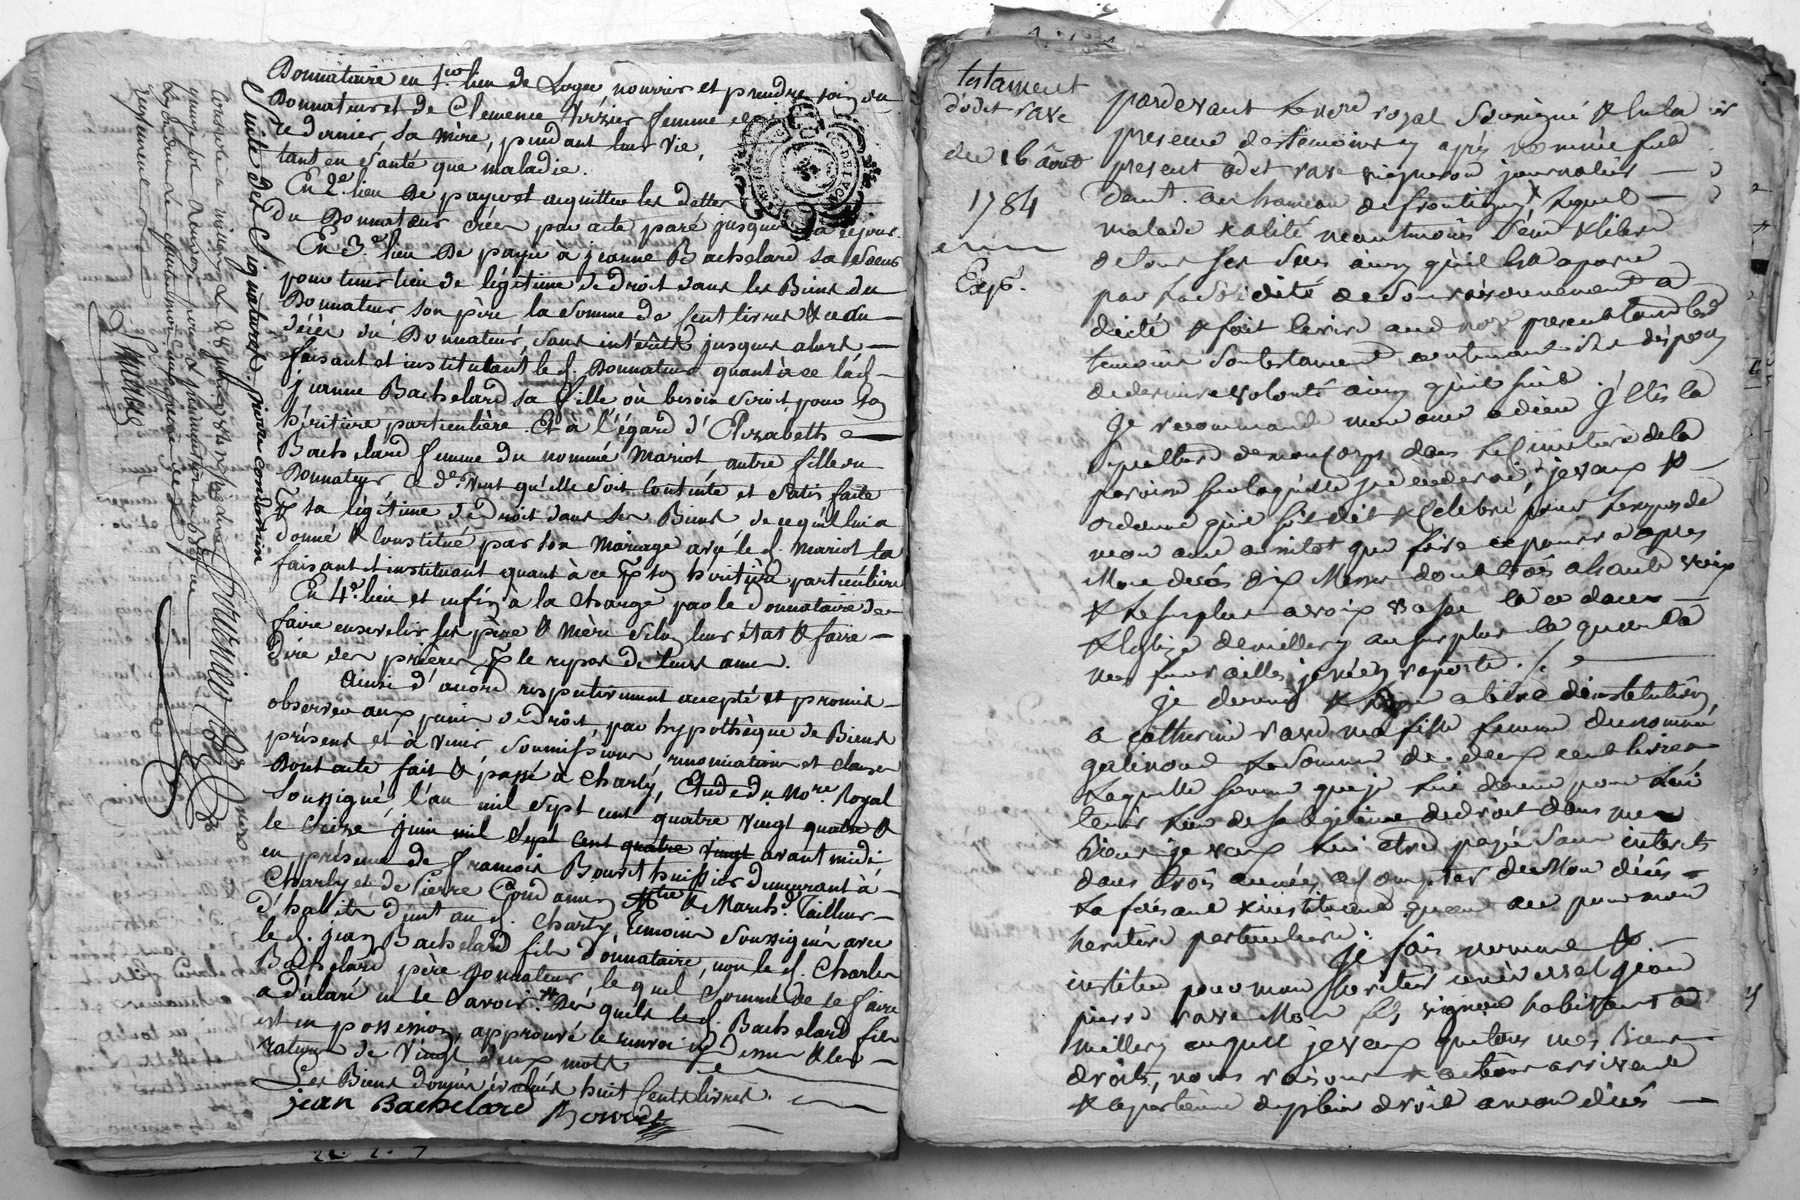 Donnataire en 1er lieu de Loger nourrir et prendre soin du
Donnateur et de Clemence Virzier femme de
ce dernier sa mère, pendant leur vie,
tant en Santé que maladie.
En 2e. lieu de payer et acquitter les dettes
du Donnateur créés par acte paré jusques à ce jour.
En 3e. lieu de payer à jeanne Bachelard sa Soeur
pour tenir lieu de légitime de droit dans les Biens du
Donnateur son père la somme de Cent livres & ce du
décès du Donnateur, sans intérêts jusques alors
faisant et instituant le d. Donnateur quant à ce la d.
jeanne Bachelard sa fille où besoin seroit, pour son
héritière particulière. Et à l'égard d'Elizabeth
Bachelard femme du nommé Mariot, autre fille du
Donnateur ce dr. veut qu'elle soit Contente et Satisfaite
pr sa légitime de Droit dans ses Biens de ce qu'il lui a
donné & Constitué par son Mariage avec le d. Mariot la
faisant et instituant quant à ce pr son héritière particulière
En 4e. lieu et enfin à la charge par le donnataire de
faire ensevelir ses père & mère selon leur état & faire
dire des prières pr le repos de leurs ames.
Ainsi d'accord respectivement accepté et promis
observer aux peines de droit par hypothèque de Biens
présens et à venir, soumissions, renonciations et clauses
Dont acte fait & passé à Charly, Etude du Nore. Royal
Soussigné l'an mil sept cent quatre vingt quatre &
le Seize juin mil sept cent quatre vingt avant midi
en présence de françois Bouret huissier demeurant à
Charly et de Pierre Condamin Marchd. Tailleur
d'habits demt au d. Charly, témoins Soussignés avec
le d. jean Bachelard fils donnataire, non le d. Charles
Bachelard père Donnateur, lequel sommé de le faire
a déclaré ne le savoir. Des quels le d. Bachelard fils
est en possession, approuvé le renvoi cy dessus & les
ratures de Vingt deux mots
Les Biens donnés évalués huit Cents livres.
jean Bachelard Bouret
Suite des Signatures pierre condamin
testament
dodet rave
du 16 août
1784
Exp.
pardevant Le nore royal Sousigné & En la
presence des temoins cy après nommés fut
present odet rave vigneron journalier
demt. au hameau de frontigny Lequel
malade & alité neantmoins sein & libre
de tous ses sens ainsy quil Est aparu
par La Solidité de son raisonnement a
dicté & fait Ecrire aud nore present lesd
temoins son testament contenant ses disposons
de derniere volonté ainsy quil suit
Je recommande mon ame a dieu j'Elis la
sepulture de mon corps dans Le Cimetière de la
paroisse sur laquelle je decederai, je veux &
ordonne qu'il soit dit & Celebré pour Le repos de
mon ame aussitot que faire ce pourra apres
Mon décés dix Messes dont trois a haute voix
& Le surplus a voix basse la ce dans
& Leglise de millery au surplus la quantité
mes funerailles je m'en raporte.
je donne & legue a titre d'institution
a catherine rave ma fille femme du nommé
galinand La somme de deux cent livres
Laquelle somme que je Lui donne pour Lui
tenir Lieu de sa legitime de droit dans mes
Biens je veux Lui etre payé sans interets
dans trois années a compter de Mon décés
La faisant & instituant quant a ce pour mon
heritiere particuliere. Je fais nomme &
institue pour mon heritier universel jean
pierre rave Mon fils vigneron habitant a
millery auquel je veux que tous mes Biens
droits, noms raisons & actions arrivent
& apartienne de plein droit a mon décés